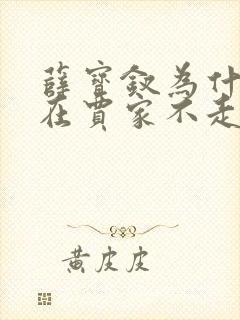 薛寶釵為什
在賈家不走
黃皮皮